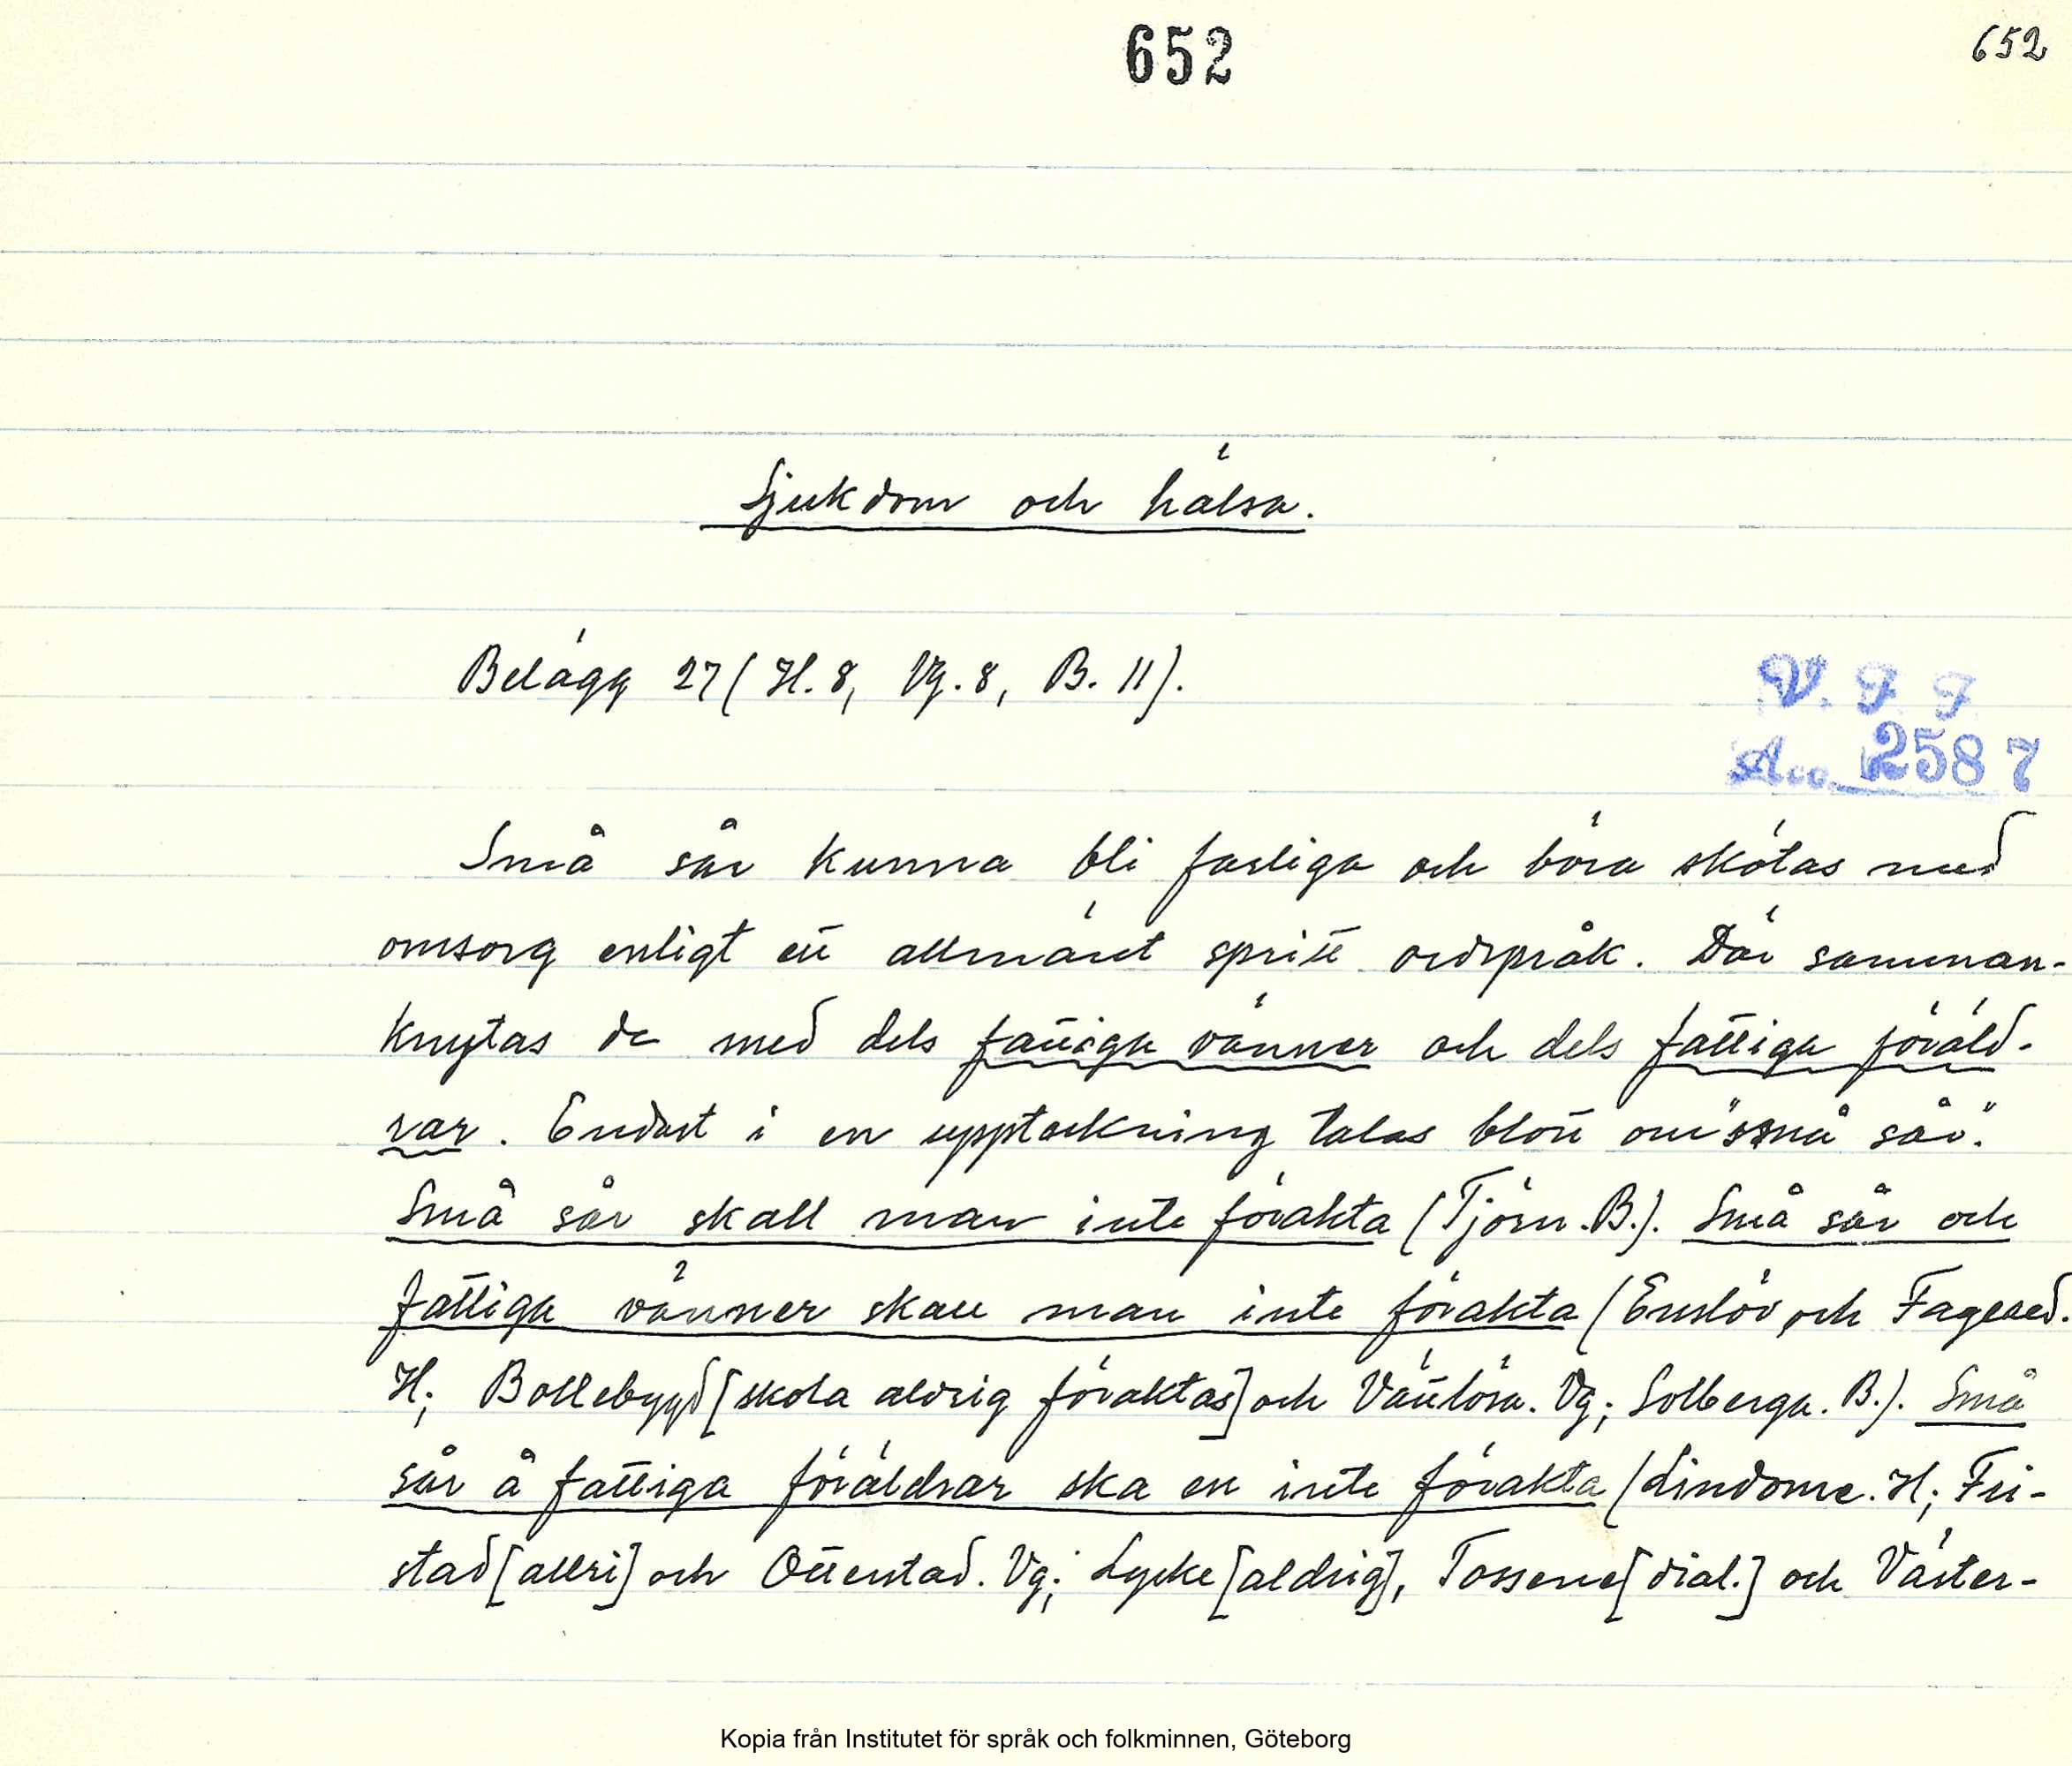 652
652
Sjukdom och hälsa.
Belägg 27 (H. 8, Vg. 8, B. 11).
V. F F
Acc. 2587
Små sår kunna bli farliga och böra skötas med
omsorg enligt ett allmänt spritt ordspråk. Där samman-
knytas de med dels fattiga vänner och dels fattiga föräld-
rar. Endast i en uppteckning talas blott om "små sår".
Små sår skall man inte förakta (Tjörn. B.). Små sår och
fattiga vänner skall man inte förakta (Enslöv och Fagered.
H; Bollebygd [skola aldrig föraktas] och VäNlösa. Vg; Solberga. B.). Små
sår å fattiga föräldrar ska en inte förakta (Lindome. H; Fri-
stad [allri] och Otterstad. Vg; Lycke [aldrig], Tossene [dial.] och Väster-
Kopia från Institutet för språk och folkminnen, Göteborg